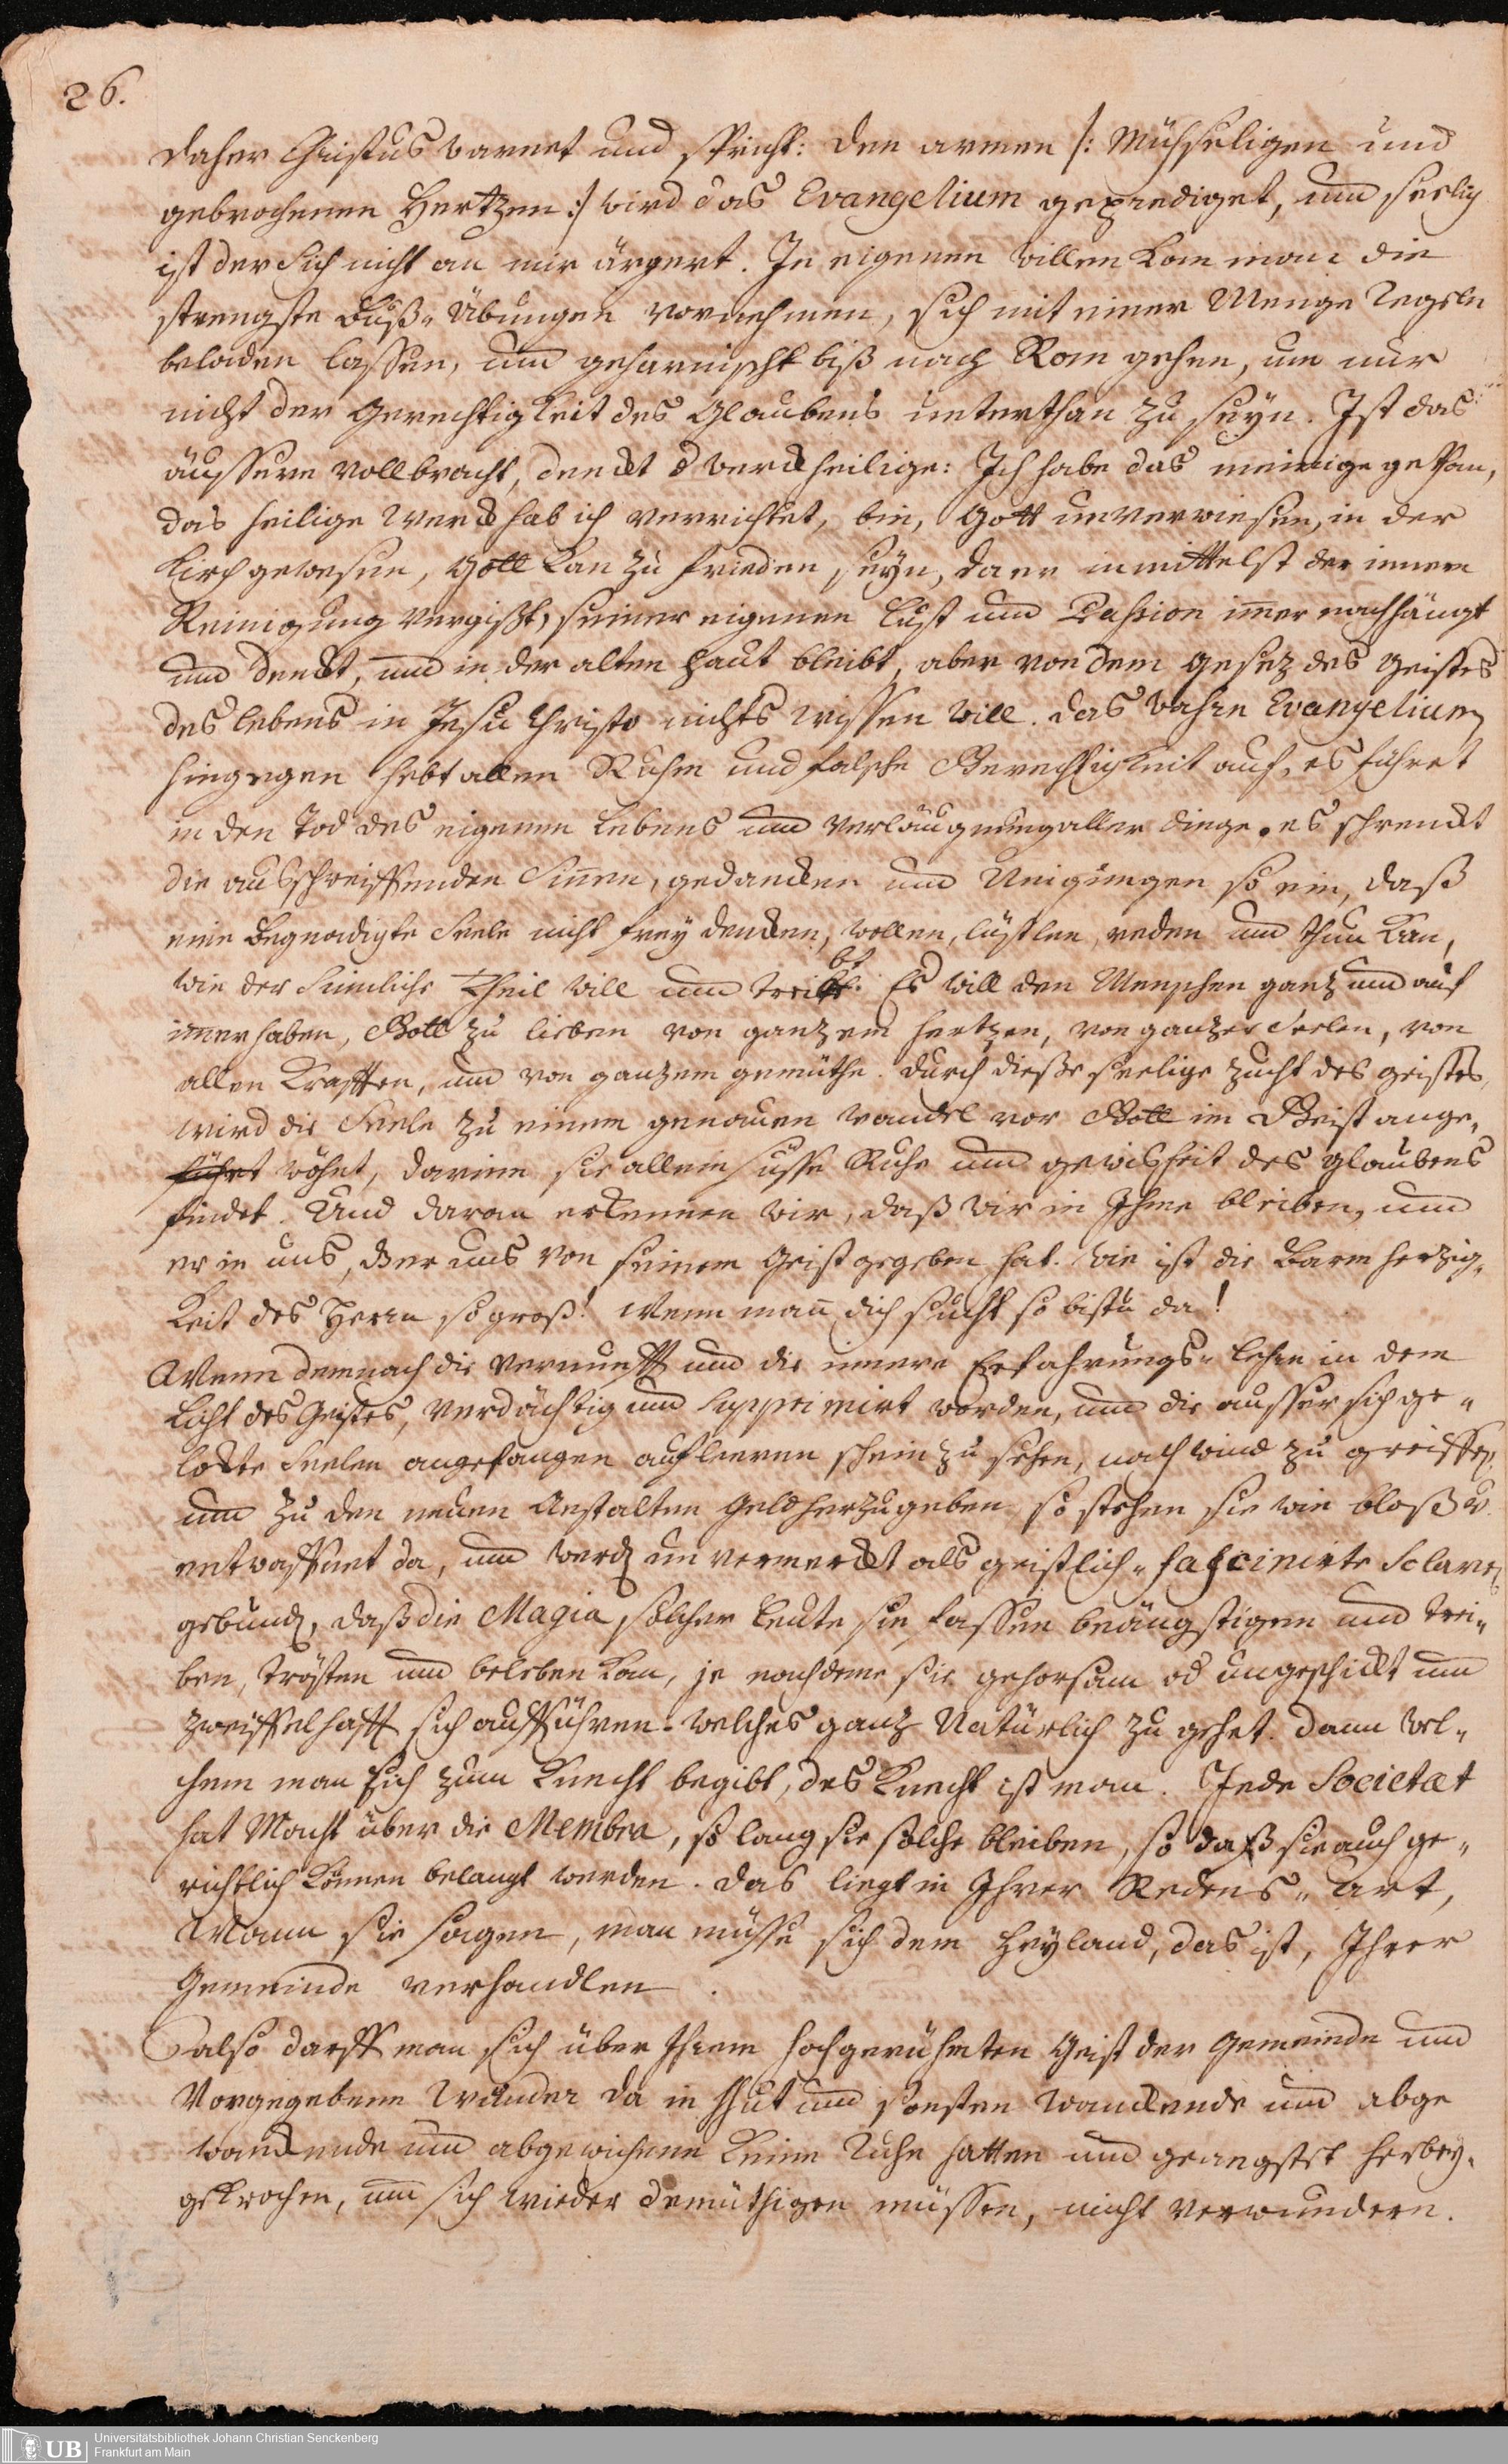 26.
daher Christus warnet und spricht: den armen /: Mühseligen und
gebrochenen Hertzen :/ wird das Evangelium geprediget, und seelig
ist der sich nicht an mir ärgert. In eigenem willen kan man die
strengste Buß-Übungen vornehmen, sich mit einer Menge Regeln
beladen lassen, und geharnischt biß nach Rom gehen, um nur
nicht der Gerechtigkeit des Glaubens unterthan zu seyn. Ist das
äussere vollbracht, denckt d werckheilige: Ich habe das meinige gethan,
das heilige werck hab ich verrichtet, bin, Gott unverwiesen, in der
Kirch gewesen, Gott kan zu frieden seyn, da er inmittelst der innern
Reinigung vergißt, seiner eigenen Lust und Passion im̅er nachhängt
und denckt, und in der alten Haut bleibt, aber von dem gesez des geistes
des lebens in Jesu Christo nichts wissen will. das wahre Evangelium
hingegen hebt allen Ruhm und falsche Gerechtigkeit auf, es führet
in den Tod des eigenen lebens und verläugnung aller dinge. es schrenckt
die ausschweiffenden Sinnen, gedancken und Neigungen so ein, daß
eine begnadigte Seele nicht frey dencken, wollen, lüstlen, reden und thun kan,
wie der sinnliche Theil will und treibt. Es will den Menschen ganz und auf
im̅er haben, Gott zu lieben von ganzem hertzen, von ganzer Seelen, von
allen Krafften, und von ganzem gemüthe. durch dieße seelige zucht des geistes,
wird die Seele zu einem genauen wandel vor Gott im Geist ange-
führt wöhnt, darinn sie allein süsse Ruhe und gewisheit des glaubens
findet. Und daran erkennen wir, daß wir in Ihme bleiben, und
er in uns, der uns von seinem Geist gegeben hat. wie ist die Barmherzig-
keit des Herrn so groß! wenn man dich sucht so bistu da!
Wenn demnach die vernunfft und die innere Erfahrungs-lehre in dem
Licht des Geistes, verdächtig und supprimirt worden, und die ausser sich ge-
lockte Seelen angefangen auf leeren schein zu sehen, nach wind zu greiffen,
und zu den neuen Anstalten Geld herzugeben so stehen sie wie bloß u.
entwaffnet da, und werden unvermerckt als geistlich-fascinirte Sclaven
gebunden, daß die Magia solcher leute sie fassen beängstigen und trei-
ben, trösten und beleben kan, je nachdeme sie gehorsam od ungeschickt und
zweiffelhafft sich aufführen. welches ganz Natürlich zu gehet. dann wel-
chem man sich zum Knecht begibt, des Knecht ist man. Jede Societaet
hat Macht über die Membra, so lang sie solche bleiben, so daß sie auch ge-
richtlich können belangt werden. das liegt in Ihrer Redens-Art,
wann sie sagen, man müsse sich dem Heyland, das ist, Ihrer
Gemeinde verhandlen.
also darff man sich über Ihrem hochgerühmten Geist der Gemeinde und
Vorgegebene Wunder da in Hut und sonsten wanckende und abge
wanckende und abgewichene keine Ruhe hatten und geängstet herbey-
gekrochen, und sich wieder demüthigen müssen, nicht verwundern.
UB
Universitätsbibliothek Johann Christian Senckenberg
Frankfurt am Main